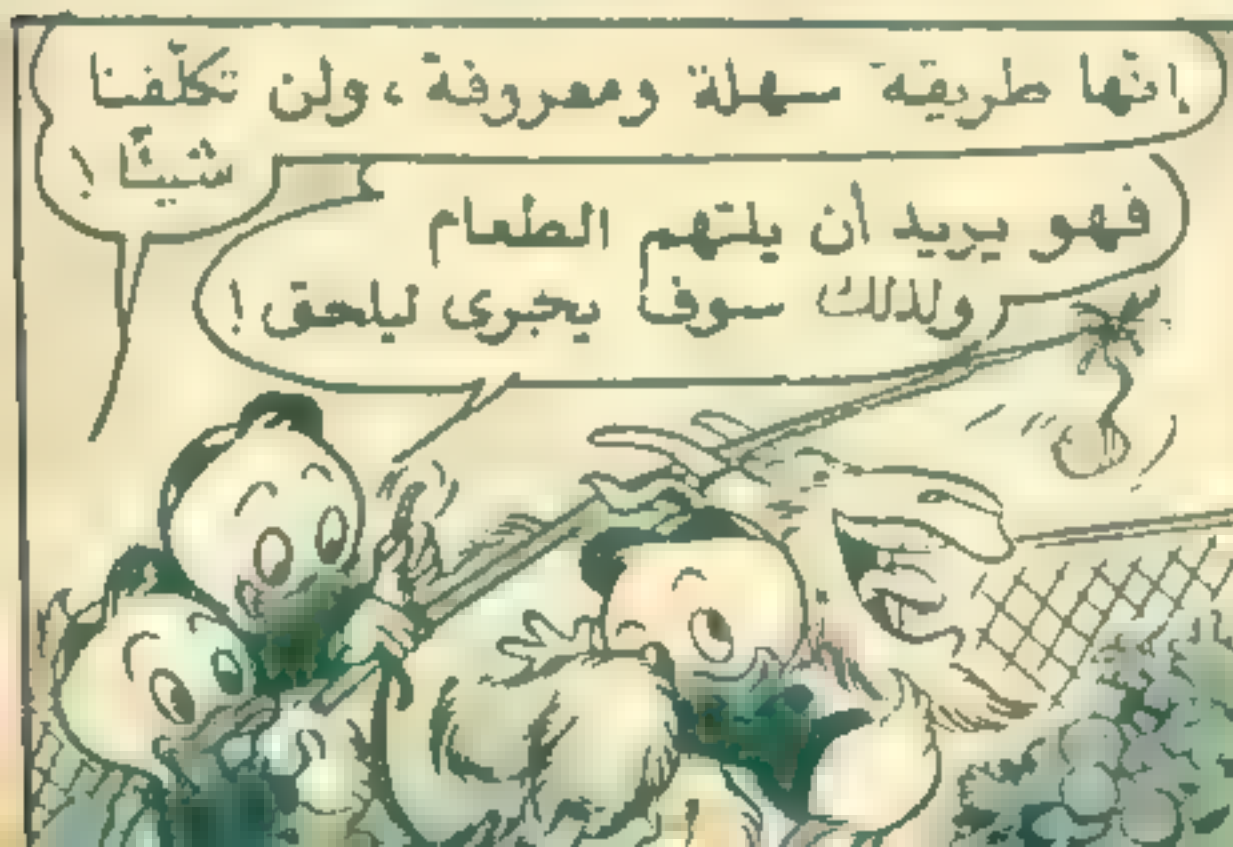 إنّها طريقة سهلة ومعروفة ، ولن تكلّفنا
شيئًا !
فهو يريد أن يلتهم الطعام
ولذلك سوف يجرى ليلحق !